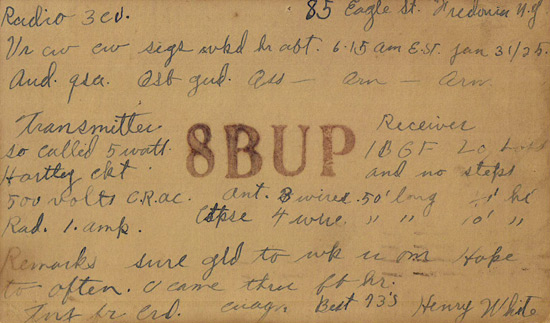 Radio 3CU. 85 Eagle St. Fredonia N.Y
Ur cw cw sigs wkd hr abt. 6.15 am E.S.T. Jan 31/25.
Aud. qsa. qsb gud. qss — qrn — qrm
Transmitter Receiver
so called 5 watt. 8BUP 1 BGF Lo Loss
Hartley ckt and no steps
500 volts C.R.ac. Ant. 3 wires. 50' long hi
Rad. 1. amp. Ctpse 4 wire " " 10' "
Remarks sure gld to wk u om Hope
to often. U came thru fb hr.
Tnx fr crd. cuagn. Best 73's Henry White